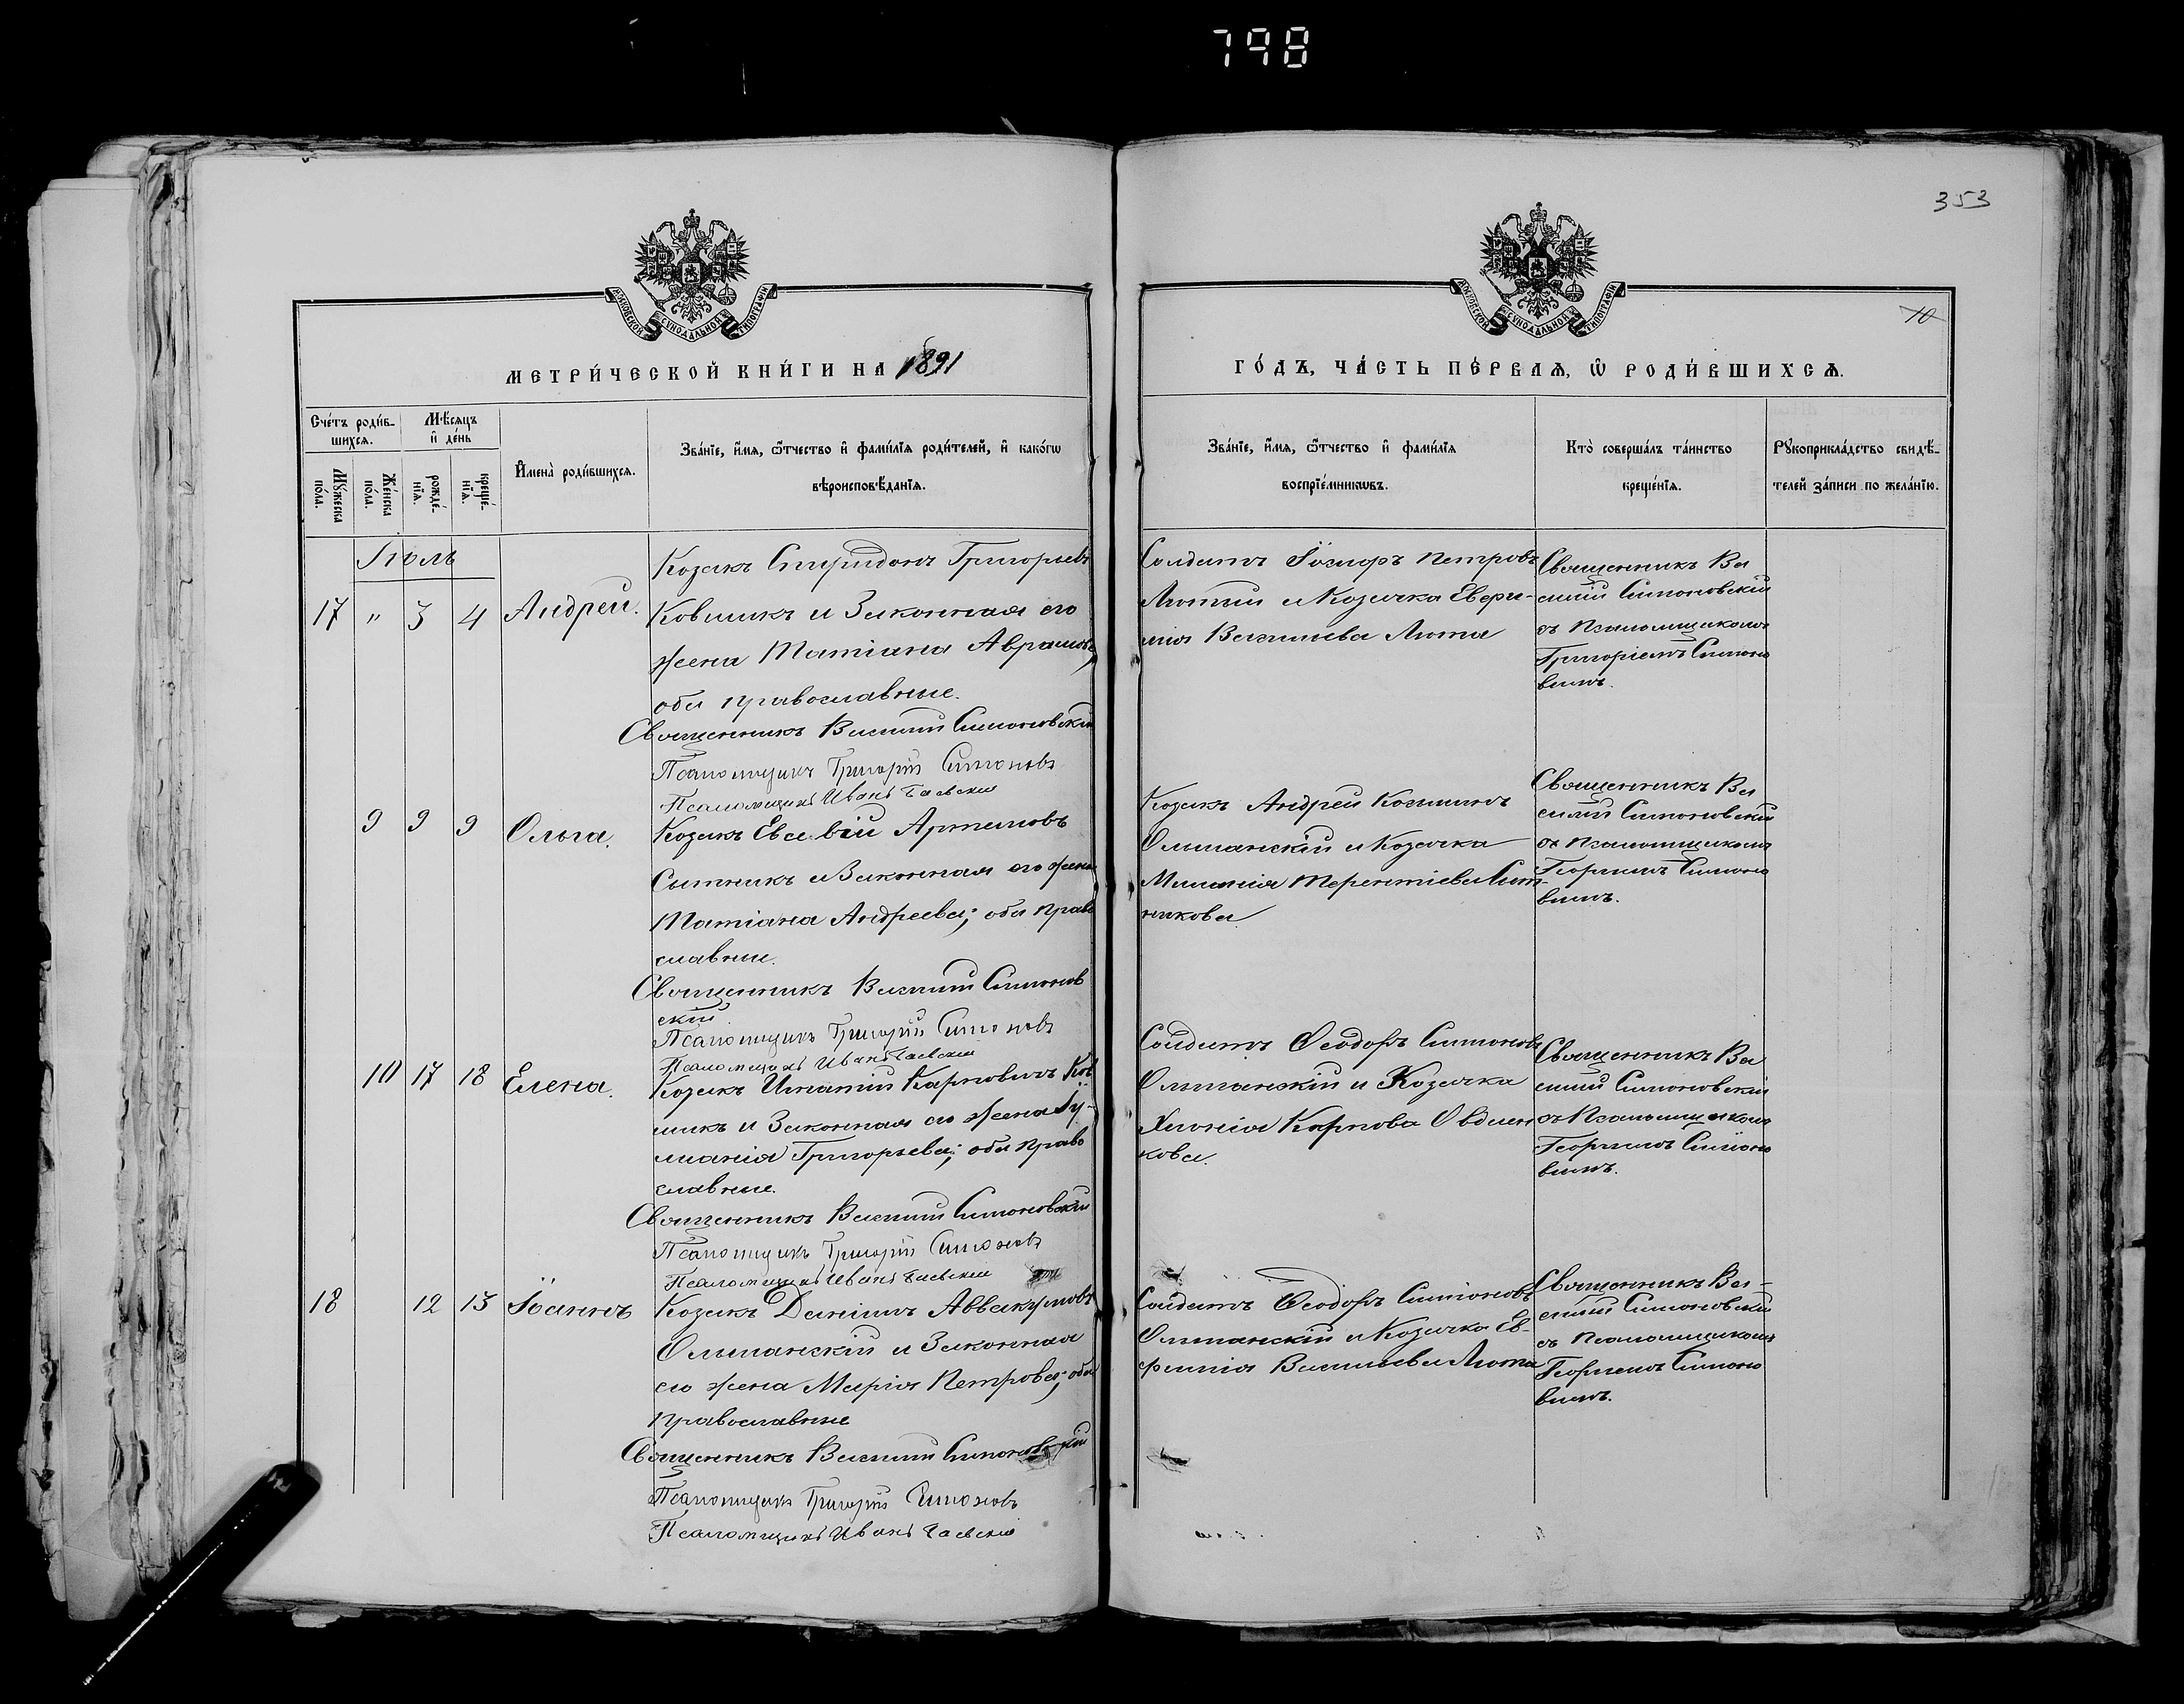 798
353
10
МОСКОВСКОЙ СѴНОДАЛЬНОЙ ТИПОГРАФІИ
МОСКОВСКОЙ СѴНОДАЛЬНОЙ ТИПОГРАФІИ
МЕТРИ́ЧЕСКОЙ КНИ́ГИ НА 1891
ГО́ДЪ, ЧА́СТЬ ПЕ́РВАѦ, Ѽ РОДИ́ВШИХСѦ.
Сче́тъ роди́в-
шихсѧ.
Мѣ́сѧцъ
и҆ де́нь
Мꙋ́жеска
по́ла.
Же́нска
по́ла.
рожде́-
нїѧ.
креще́-
нїѧ.
И҆мена̀ роди́вшихсѧ.
Зва́нїе, и҆́мѧ, ѻ҆́тчество и҆ фами́лїѧ роди́телей, и҆ како́гѡ
вѣроисповѣ́данїѧ.
Зва́нїе, и҆́мѧ, ѻ҆́тчество и҆ фами́лїѧ
воспрїе́мникѡвъ.
Кто̀ соверша́лъ та́инство
креще́нїѧ.
Рꙋкоприкла́дство свидѣ́-
телей за́писи по жела́нїю.
Іюль
17 " 3 4 Андрей.
Козакъ Спиридонъ Григорьевъ
Ковшикъ и Законная его
жена Татіана Аврамова,
оба православные.
Священникъ Василій Симоновскій
Псаломщикъ Григорій Симоновъ
Псаломщикъ Иванъ Гаевскій
Солдатъ Петровъ
Лютий и Козачка
Васильева Люта
Священникъ Ва
силій Симоновскій
съ Псаломщикомъ
Григоріемъ Симоно
вымъ.
9 9 9 Ольга.
Козакъ Евсевій Артемовъ
Сытникъ и Законная его жена
Татіана Андреева; оба право
славные.
Священникъ Василій Симонов
скій
Псаломщикъ Григорій Симоновъ
Псаломщикъ Иванъ Гаевскій
Козакъ Андрей Козминъ
Ольшанскій и Козачка
Меланія Терентіева Сит-
никова
Священникъ Ва
силій Симоновскій
съ Псаломщикомъ
Симоно
вымъ.
10 17 18 Елена.
Козакъ Игнатій Карповичъ Ков
шикъ и Законная его жена Іу-
лианія Григорьева; оба право
славные.
Священникъ Василій Симоновскій
Псаломщикъ Григорій Симоновъ
Псаломщикъ Иванъ Гаевскій
Солдатъ Ѳеодоръ Симоновъ
Ольшанскій и Козачка
Карпова Овдиен
кова.
Священникъ Ва
силій Симоновскій
съ Псаломщикомъ
Симоно
вымъ.
18 12 13 Іоаннъ
Козакъ Даніилъ Аввакумовъ
Ольшанскій и Законная
его жена Марія Петрова; оба
православные
Священникъ Василій Симоновскій
Псаломщикъ Григорій Симоновъ
Псаломщикъ Иванъ Гаевскій
Солдатъ Ѳеодоръ Симоновъ
Ольшанскій и Козачка Ев-
фимія Васильева Люта
Священникъ Ва-
силій Симоновскій
съ Псаломщикомъ
Симоно
вымъ.